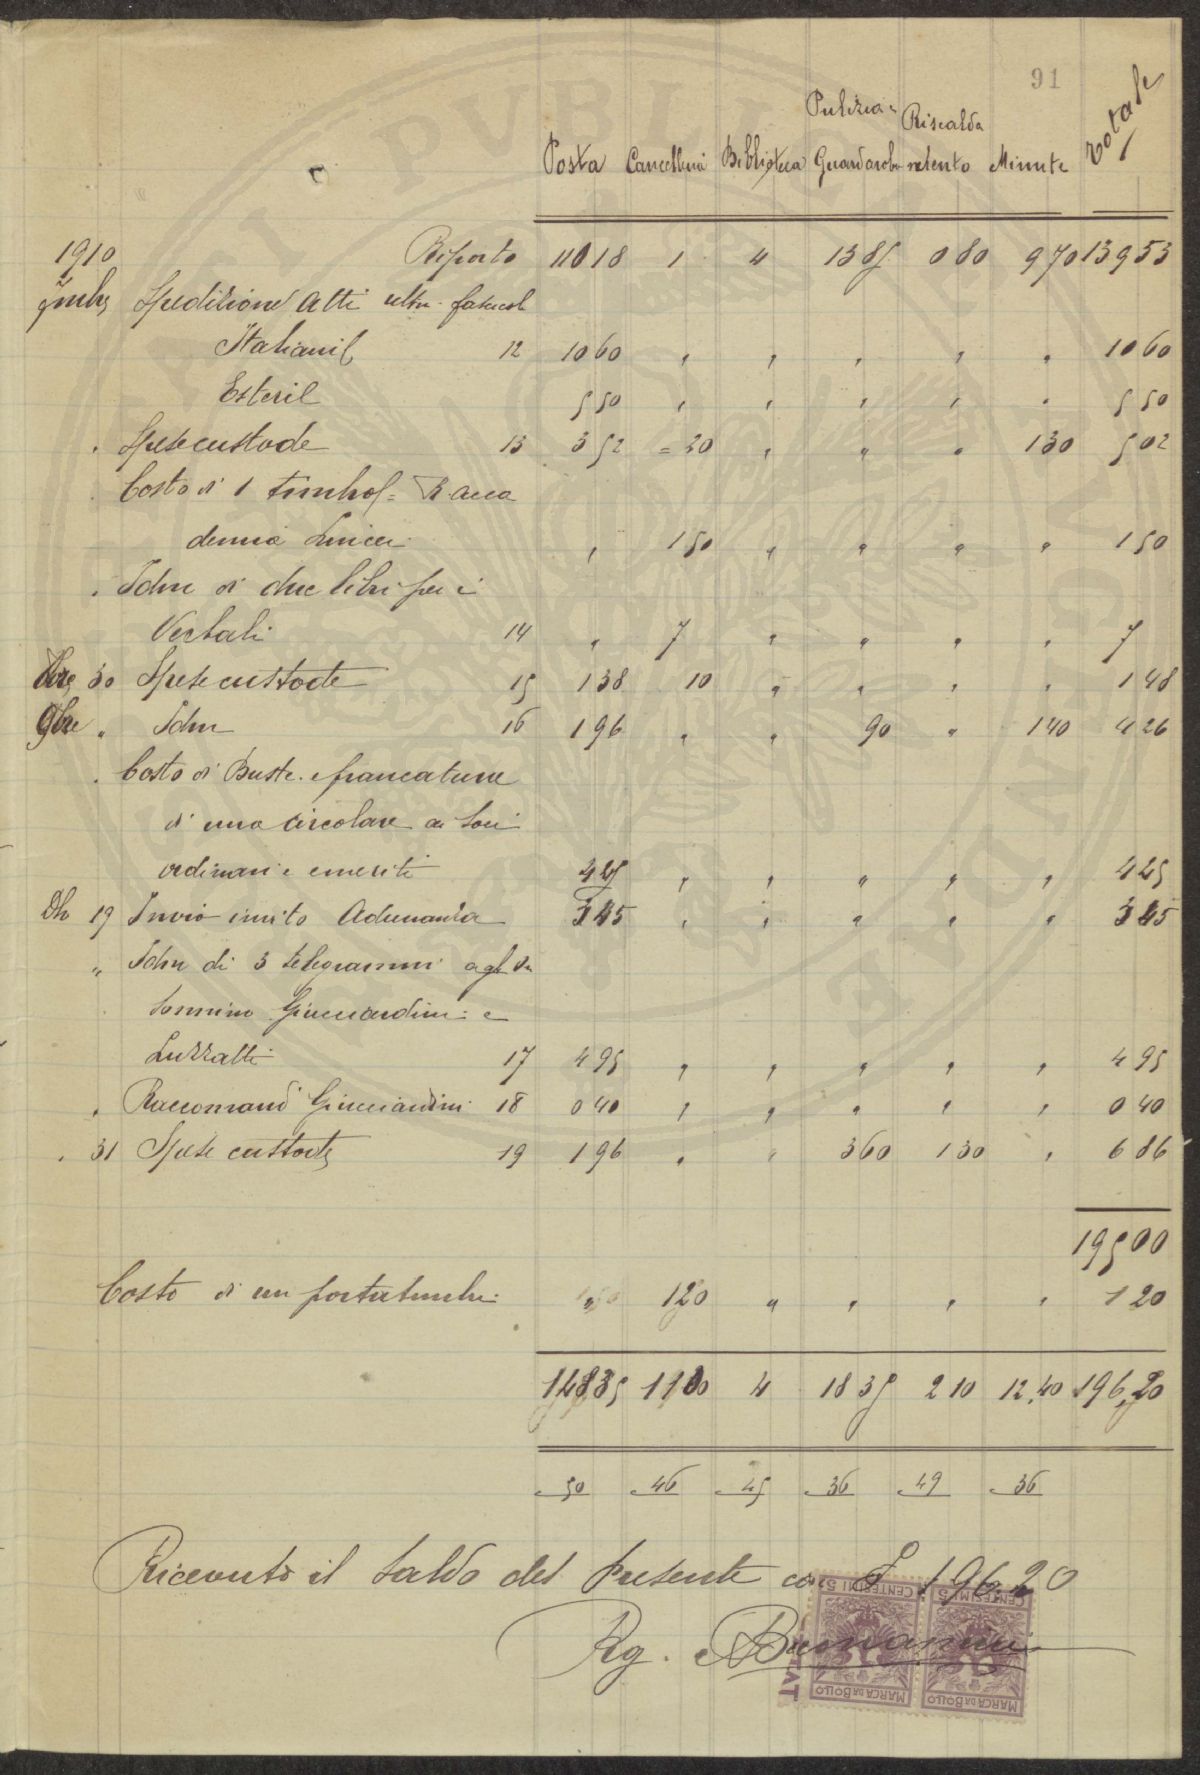 91
Pulizia e Riscalda
Posta Cancelleria Biblioteca Guardaroba mento Minute Totale
1910 Riporto 11018 1 4 1385 080 970 13953
Spedizione Atti ultn. fascicol
Italiani£ 12 1060 " " " " " 1060
Esteri£ 550 " " " " " 550
" Spese custode 13 352 = 20 " " " 130 502
Costo di 1 timbro£ = R. Acca
demia Lincei " 150 " " " " 150
" Idm di due libri per i
Verbali 14 " 7 " " " " 7
30 Spese custode 15 138 10 " " " " 148
9bre " Idm 16 196 " " 90 " 140 426
" Costo di Buste e francature
di una circolare ai Soci
ordinari e emeriti 425 " " " " " 425
Db 19 Invio invito Adunanza 345 " " " " " 345
" Idm di 3 telegrammi agl On
Sonnino Guicciardini e
Luzzatti 17 495 " " " " " 495
" Raccomand Guicciardini 18 040 " " " " " 040
" 31 Spese custode 19 196 " " 360 130 " 686
19500
Costo di un portatimbri " 120 " " " " 120
14835 1100 4 1835 210 12,40 196,20
50 46 45 36 49 36
Ricevuto il Saldo del Presente con £ 196.20
Rg. A Buonamici
CENTESIMI 5 CENTESIMI 5
MARCA DA BOLLO MARCA DA BOLLO